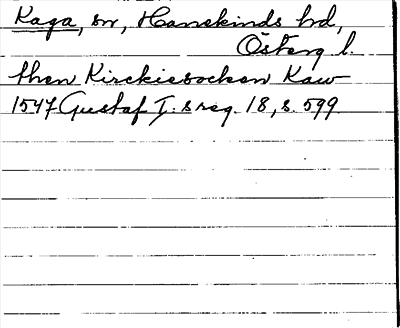 Kaga, sn, Hanekinds hd,
Österg l.
then Kirckiesocken Kaw
1547 Gustaf I:s reg. 18, s. 599